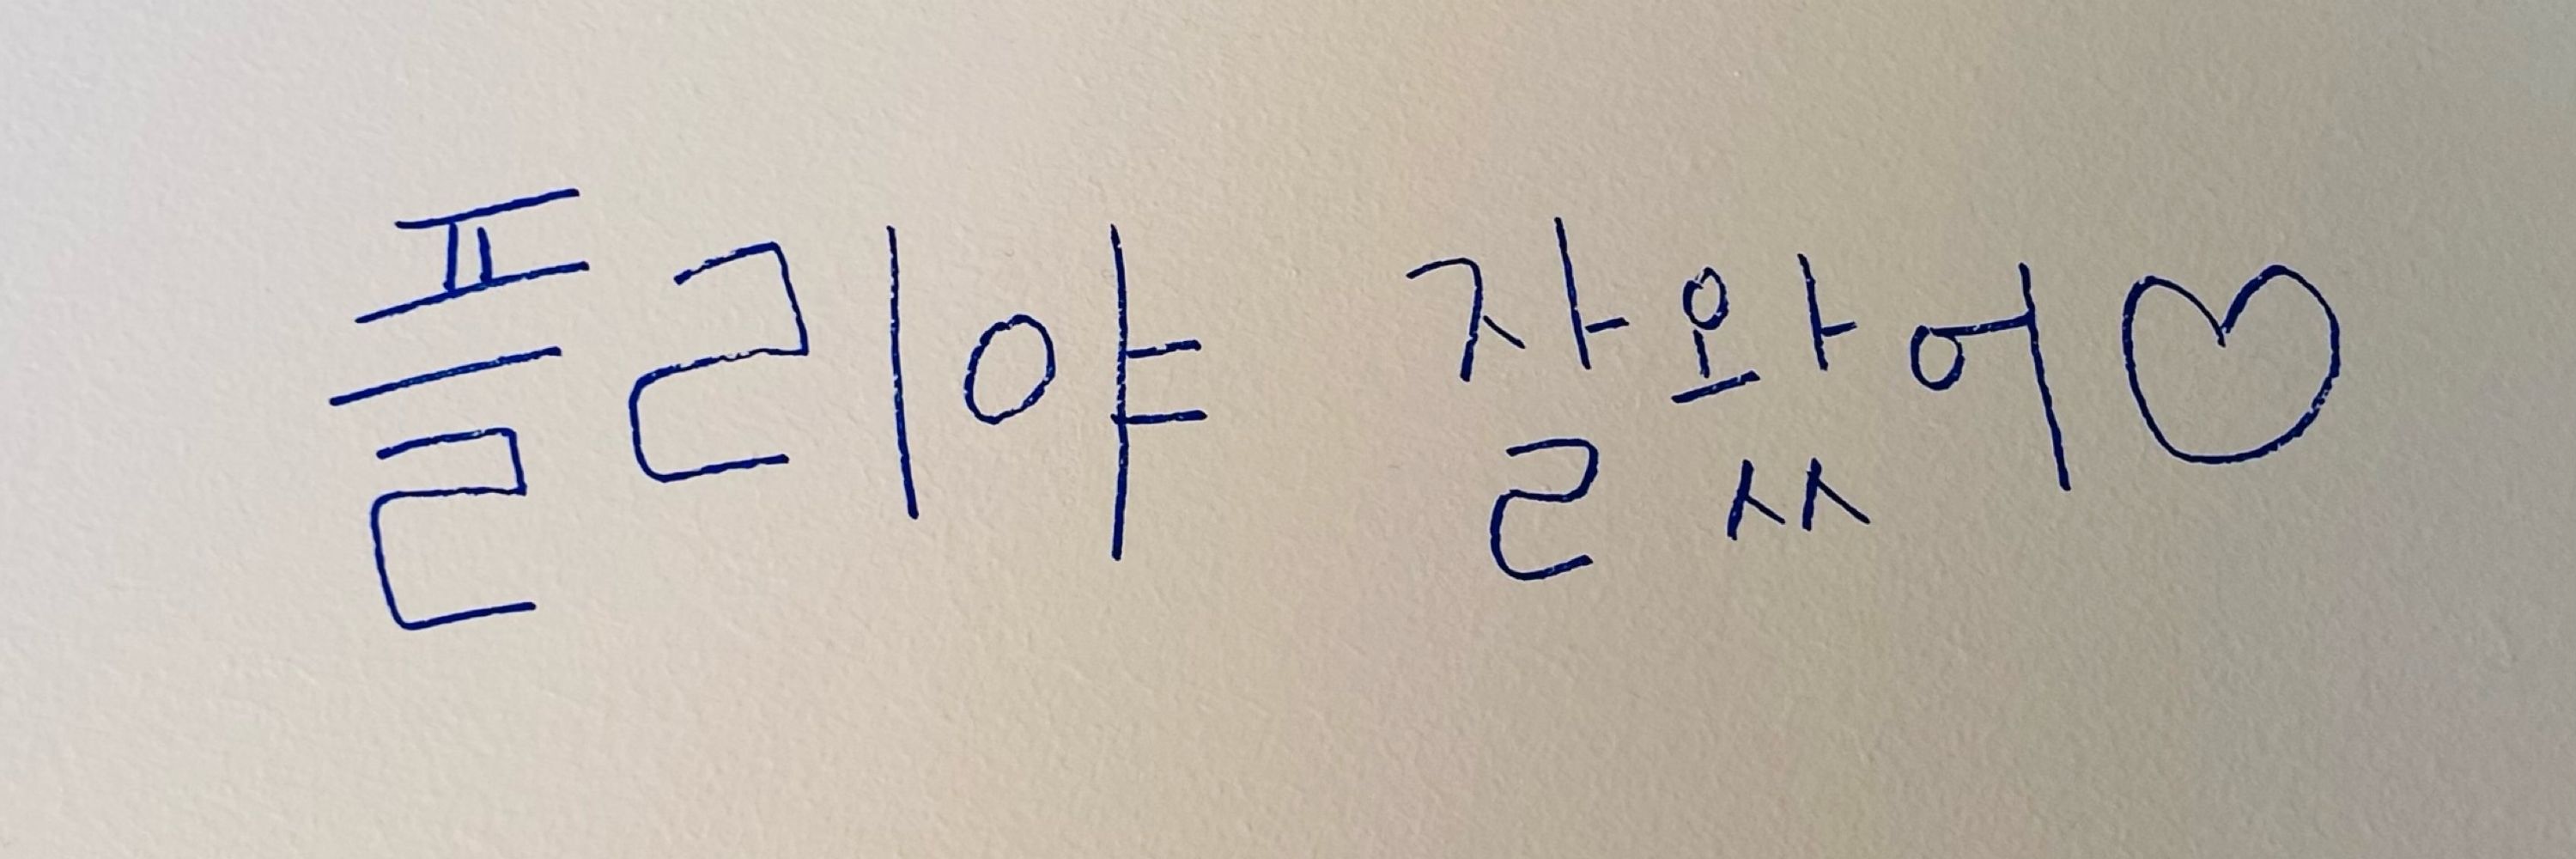 플리야 잘왔어♡